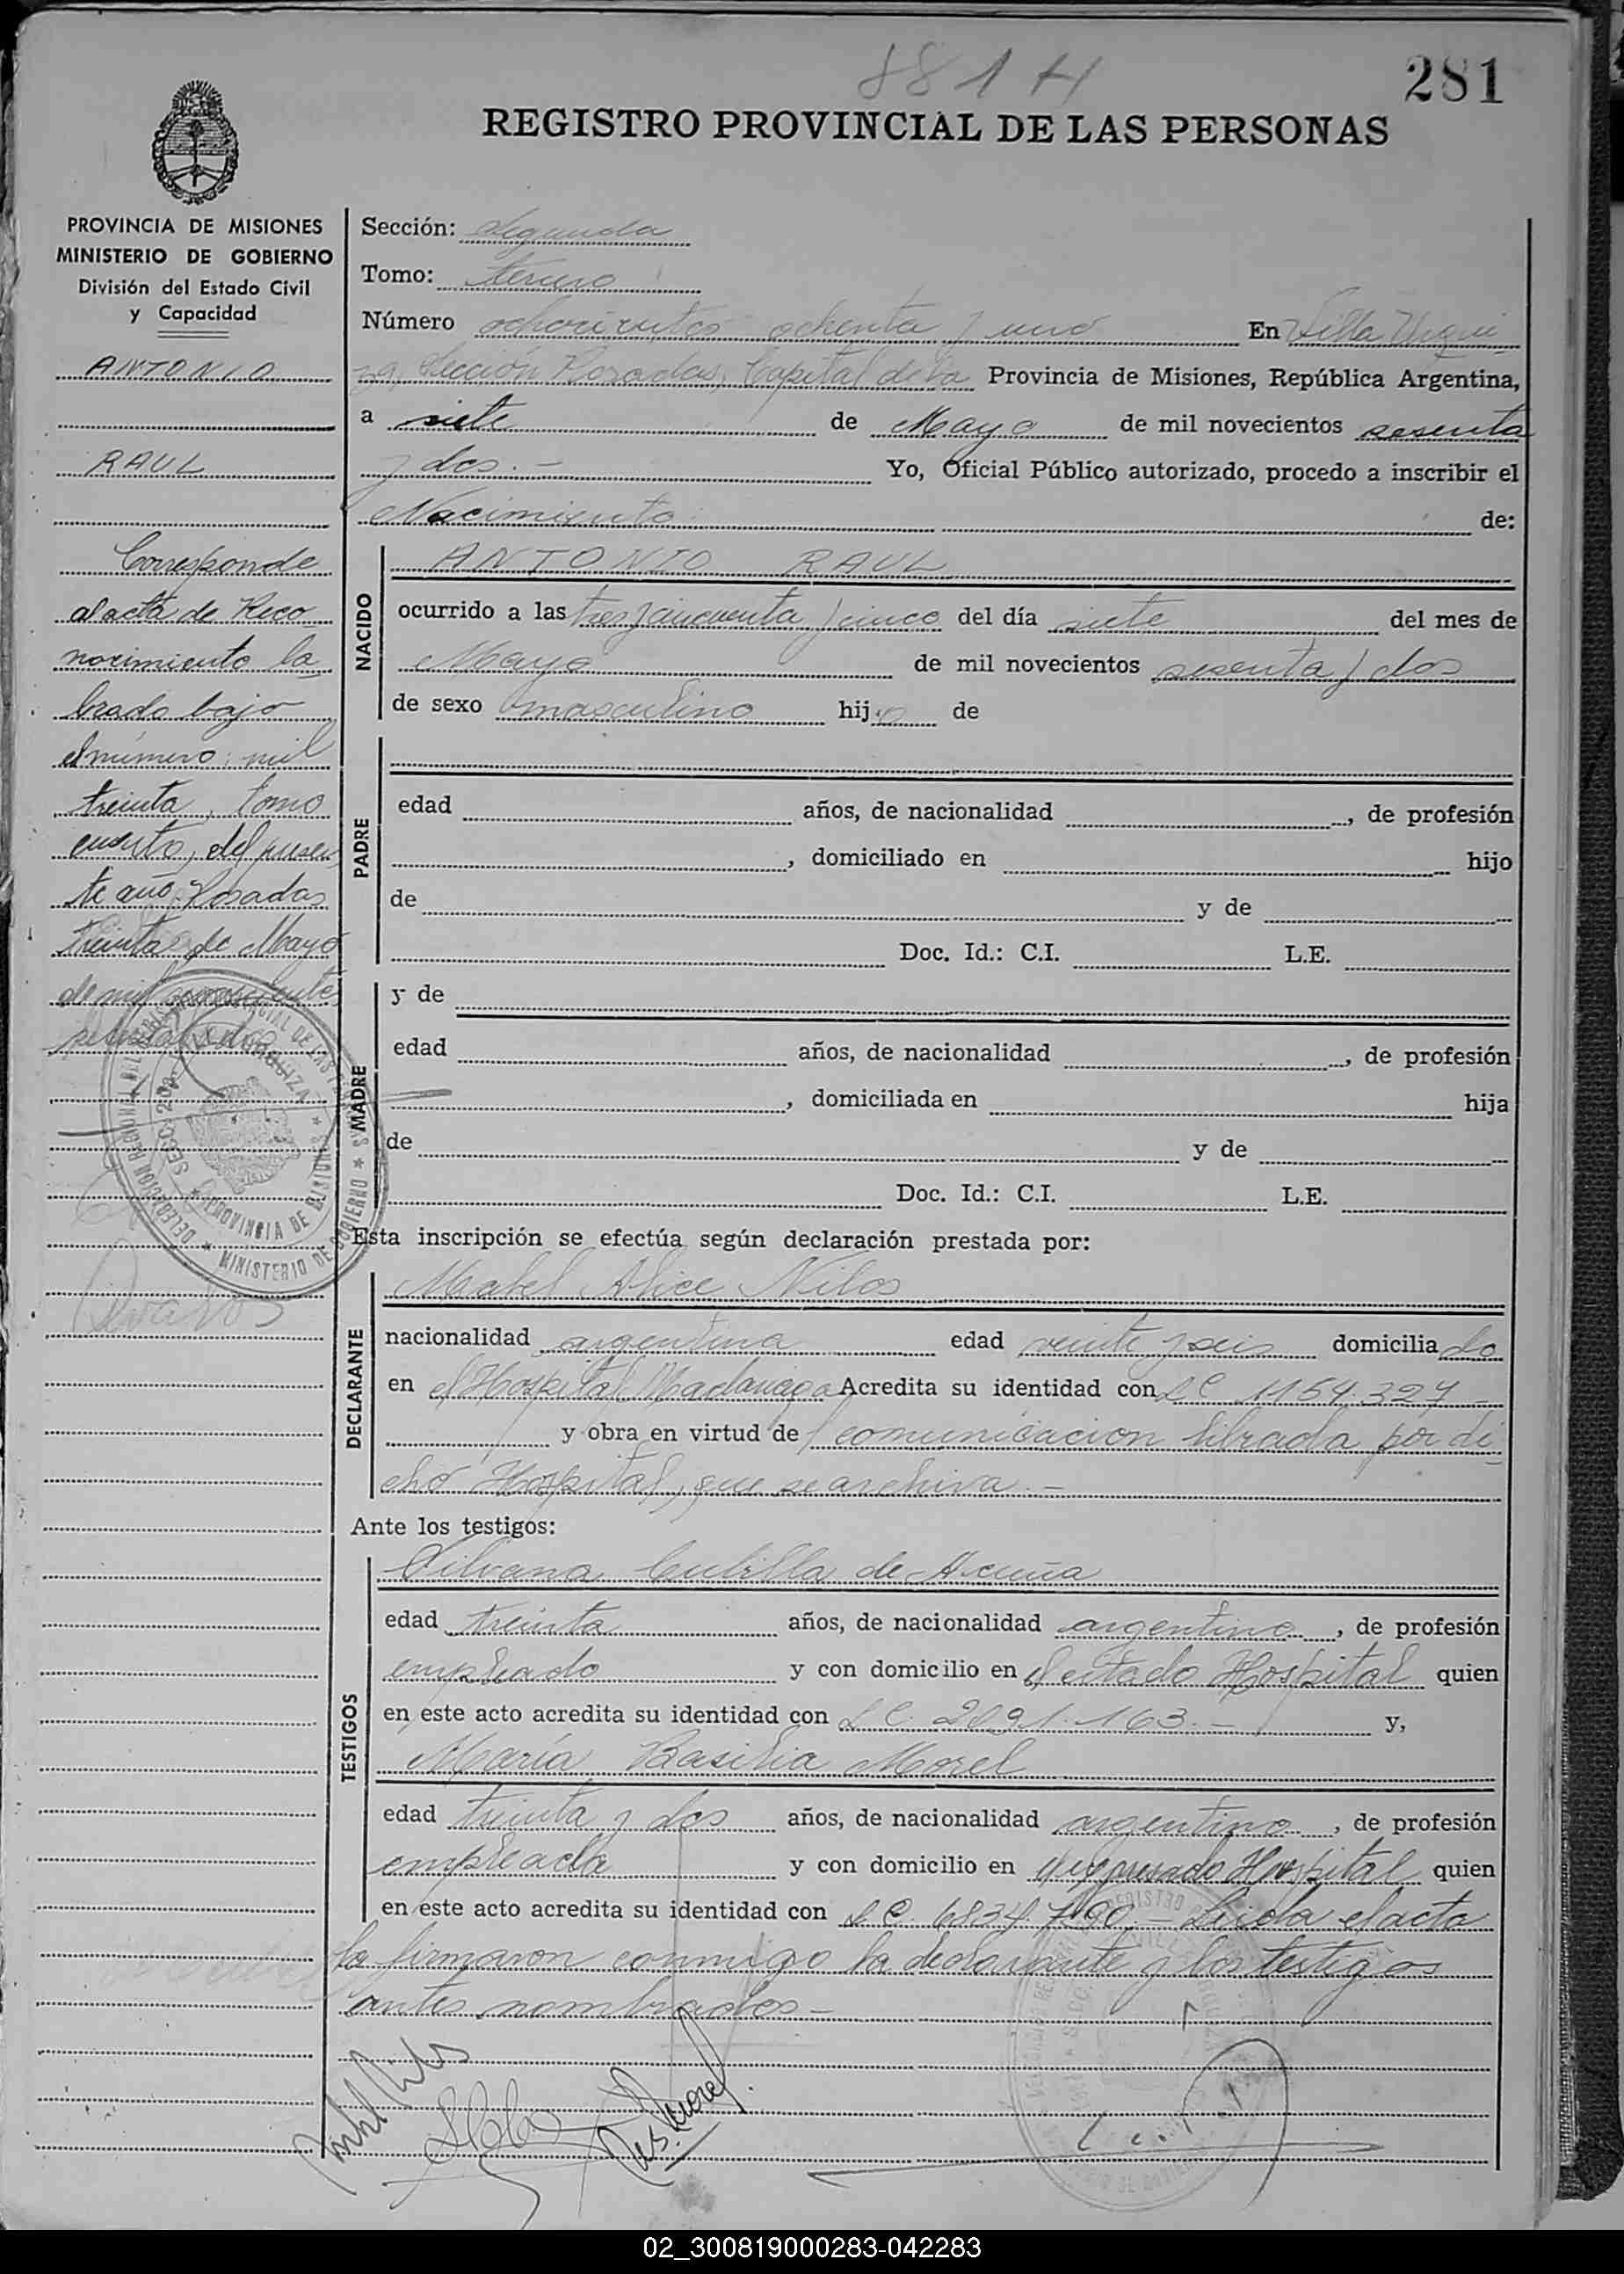 881 H
281
REGISTRO PROVINCIAL DE LAS PERSONAS
PROVINCIA DE MISIONES
MINISTERIO DE GOBIERNO
División del Estado Civil
y Capacidad
ANTONIO
RAUL
Corresponde
al acta de Reco
nocimiento la
brado bajo
el número: mil
treinta, tomo
cuarto, del presen
te año. Posadas
treinta de Mayo
de mil novecientos
sesenta y dos
Sección: Segunda
Tomo: tercero
Número ochocientos ochenta y uno En Villa Urqui
za, Sección Posadas, Capital de la Provincia de Misiones, República Argentina,
a siete de Mayo de mil novecientos sesenta
y dos.- Yo, Oficial Público autorizado, procedo a inscribir el
Nacimiento de:
NACIDO
ANTONIO RAUL
ocurrido a las tres y cincuenta y cinco del día siete del mes de
Mayo de mil novecientos sesenta y dos
de sexo masculino hijo de
PADRE
edad años, de nacionalidad , de profesión
, domiciliado en hijo
de y de
Doc. Id.: C.I. L.E.
MADRE
y de
edad años, de nacionalidad , de profesión
, domiciliada en hija
de y de
Doc. Id.: C.I. L.E.
Esta inscripción se efectúa según declaración prestada por:
DECLARANTE
Mabel Alice Nilos
nacionalidad argentina edad veinte y seis domiciliado
en el Hospital Madariaga Acredita su identidad con LC 1154.327
y obra en virtud de comunicacion librada por di
cho Hospital, que se archiva.-
Ante los testigos:
TESTIGOS
Silvana Cubilla de Acuña
edad treinta años, de nacionalidad argentino, de profesión
empleado y con domicilio en el citado Hospital quien
en este acto acredita su identidad con L C. 2091.163.- y,
María Basilia Morel
edad treinta y dos años, de nacionalidad argentino, de profesión
empleada y con domicilio en el expresado Hospital quien
en este acto acredita su identidad con L C. 6824.790.- Leída el acta
la firmaron conmigo la declarante y los testigos
antes nombrados-
02_300819000283-042283